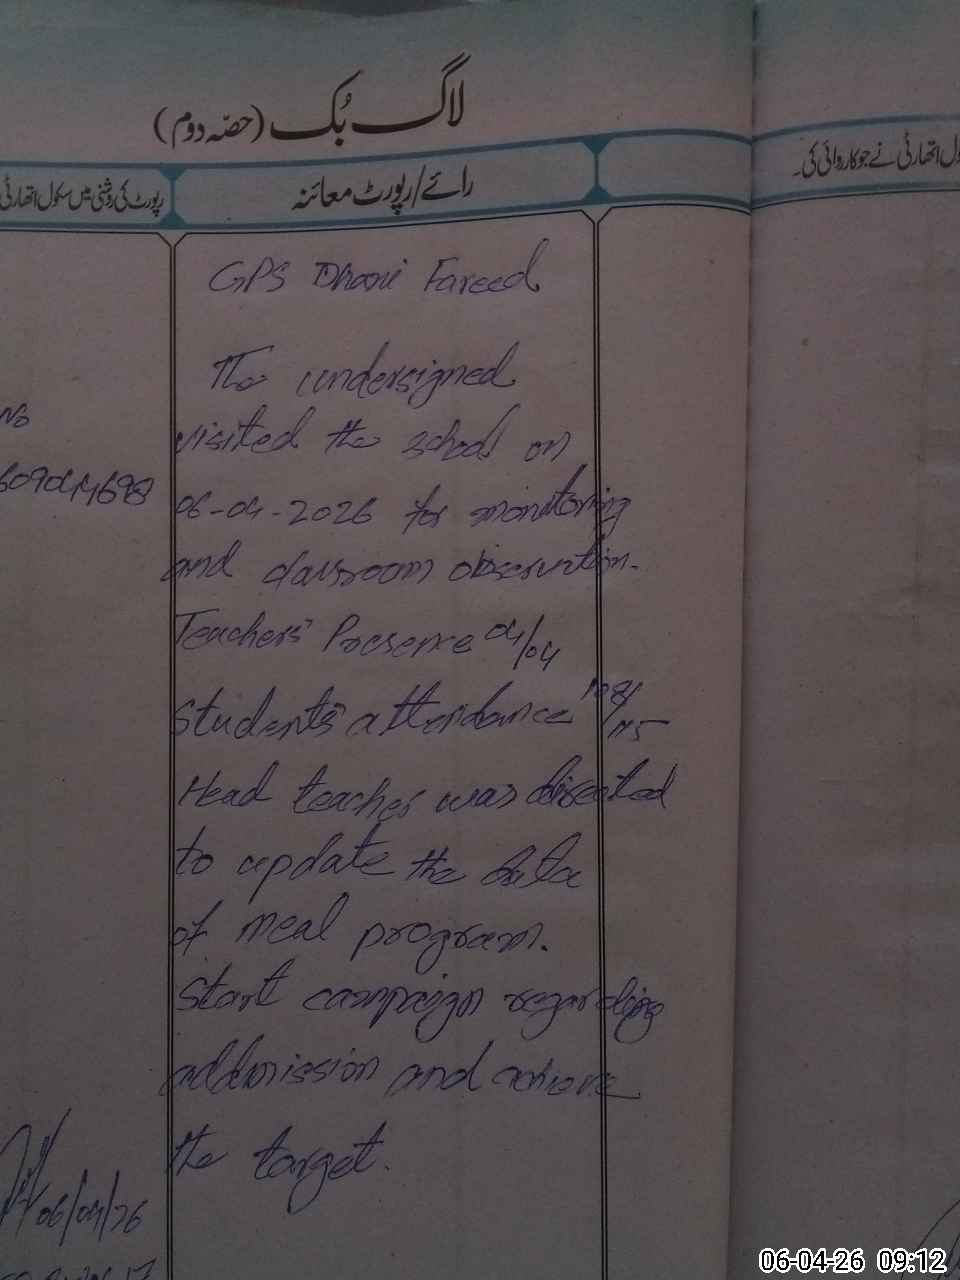 لاگ بُک (حصّہ دوم)
رپورٹ کی روشنی میں سکول اتھارٹی
رائے/رپورٹ معائنہ
ول اتھارٹی نے جو کاروائی کی۔
GPS Dhani Fareed
The undersigned
visited the school on
06-04-2026 for monitoring
and classroom observation.
Teachers' Presence 04/04
Students' attendance /115
Head teacher was directed
to update the data
of meal program.
Start campaign regarding
addmission and achieve
the target.
No
609044698
06/04/26
06-04-26 09:12